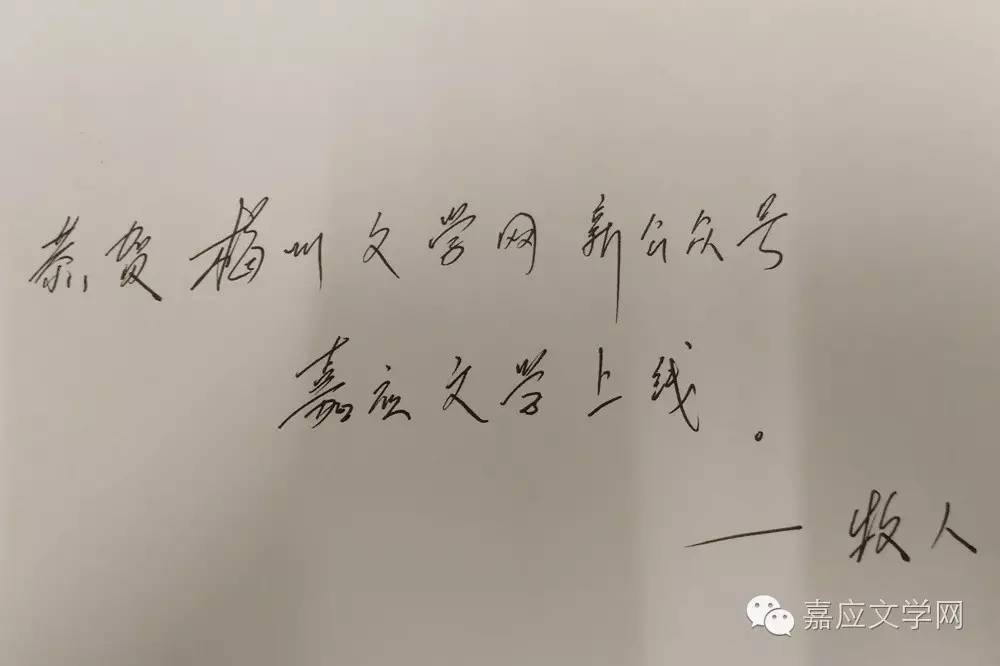 恭贺梅州文学网新公众号
嘉应文学上线。
——牧人
嘉应文学网